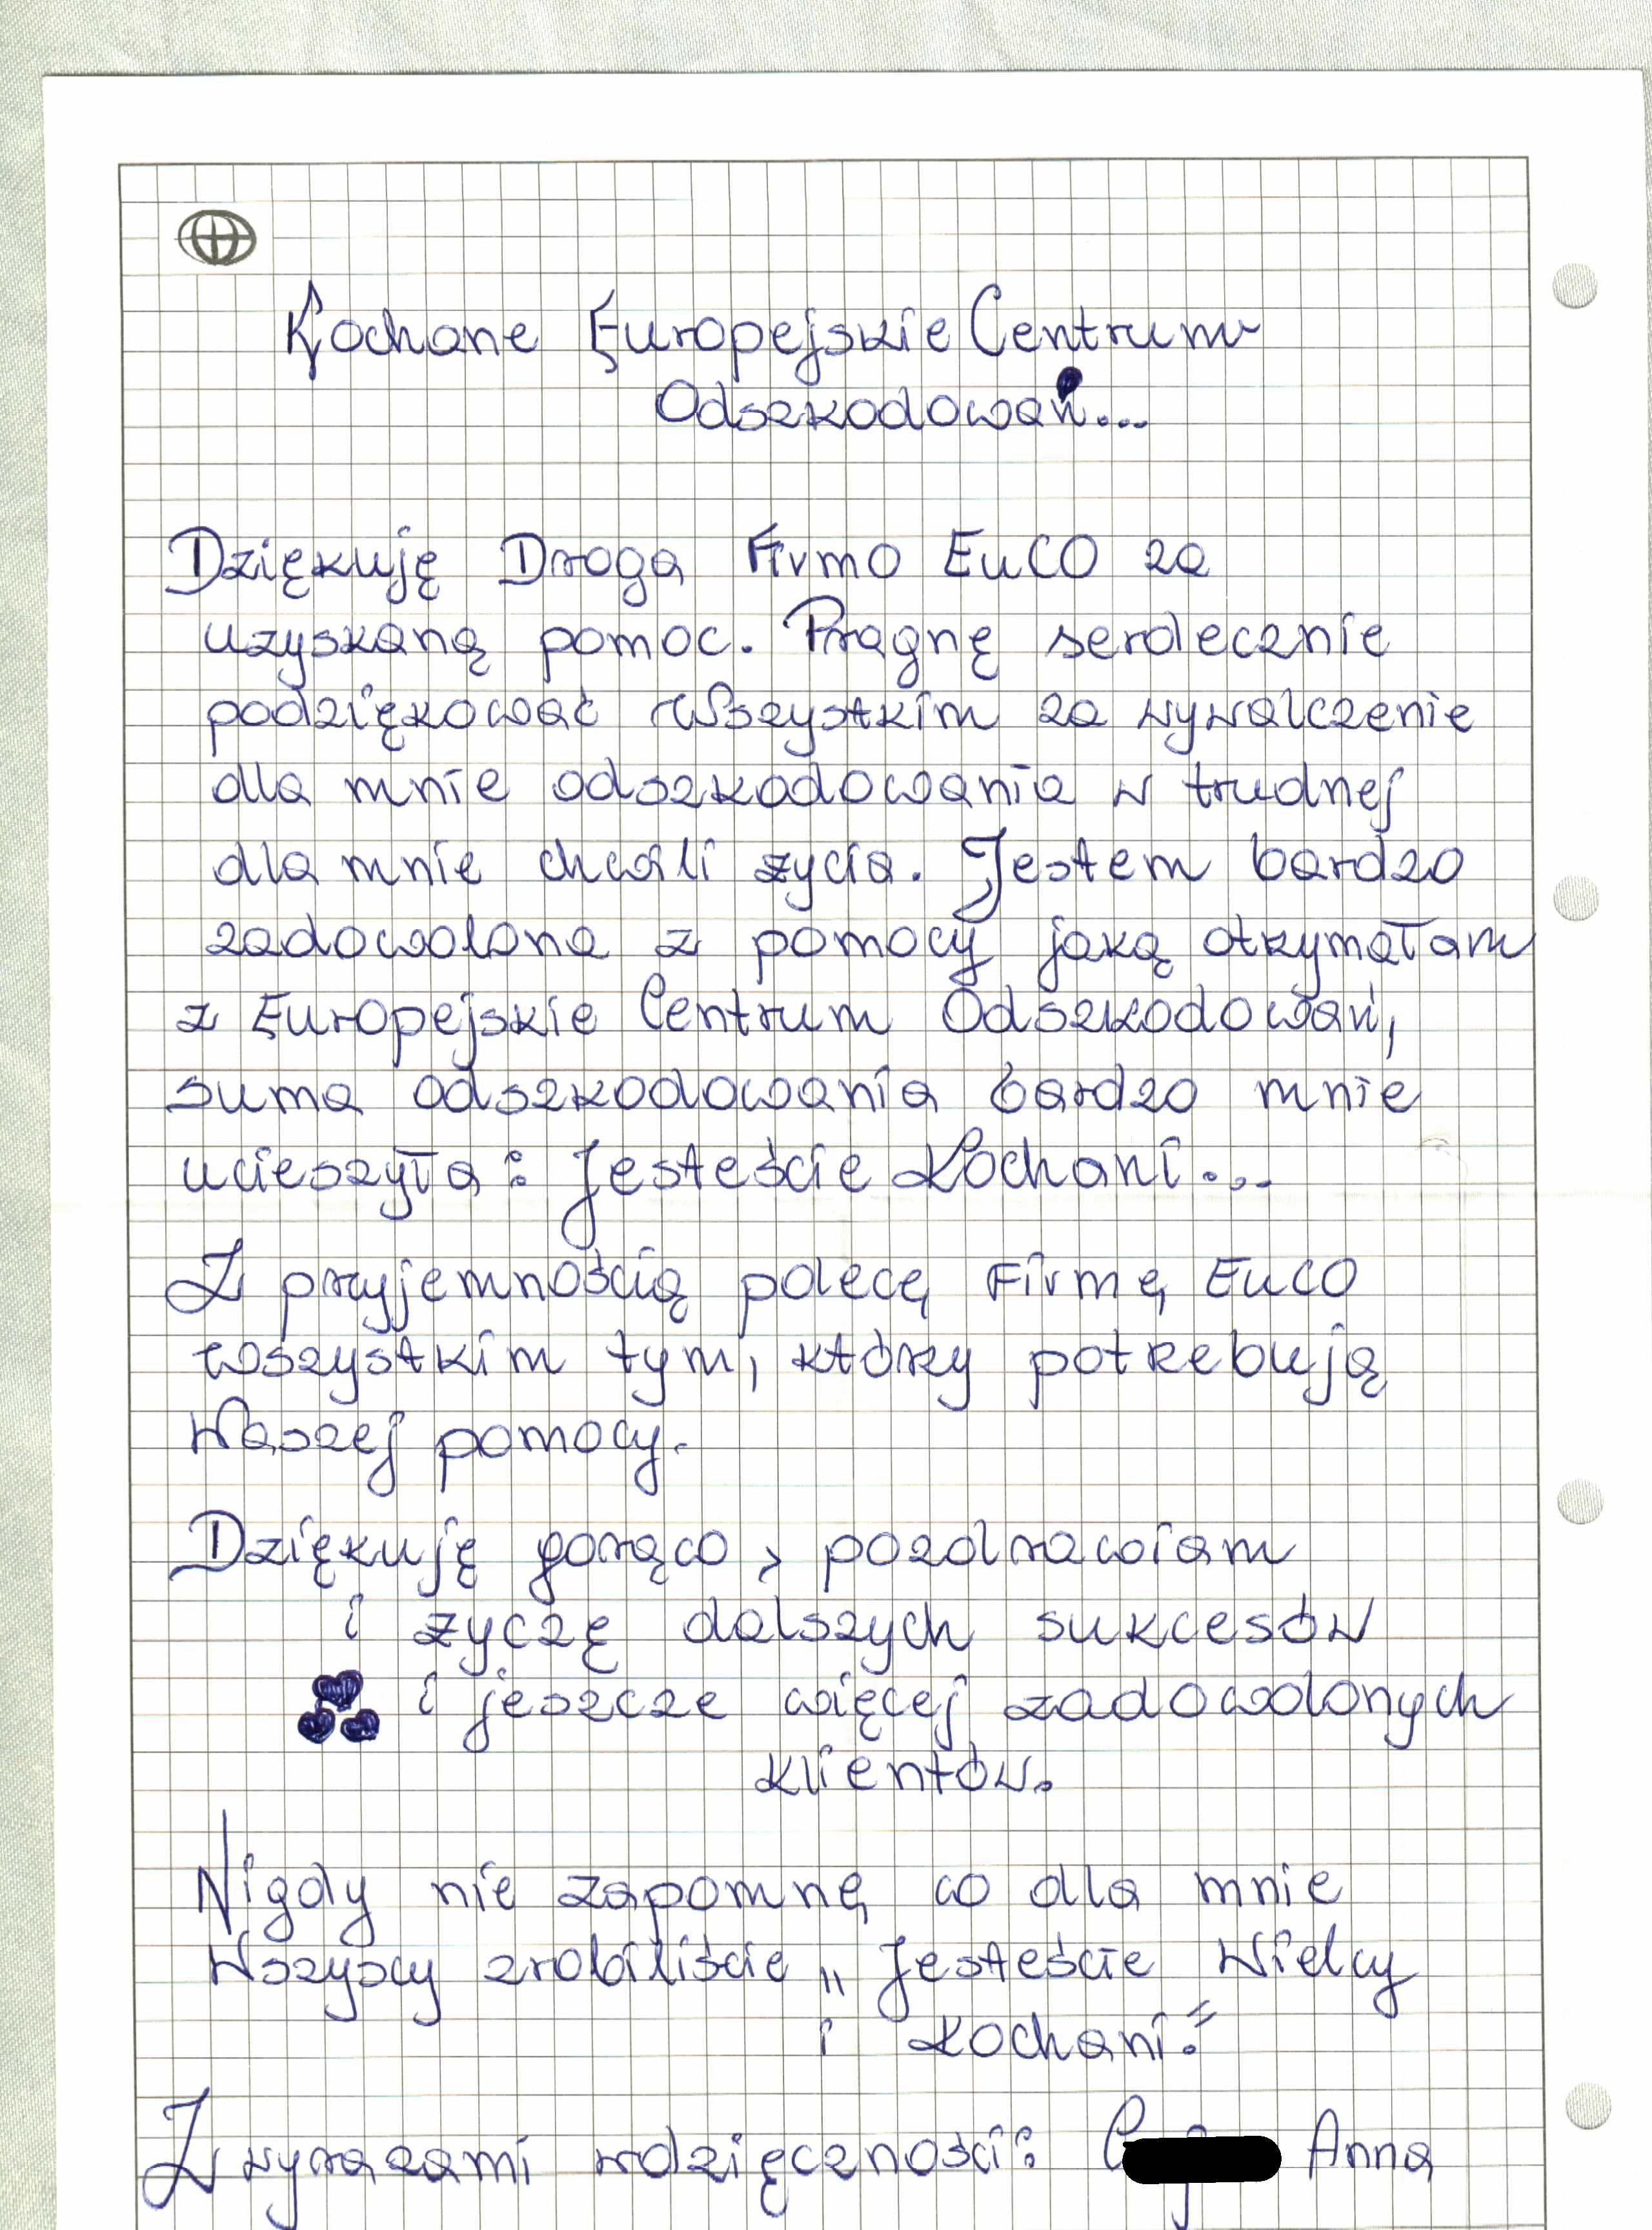 Kochane Europejskie Centrum
Odszkodowań...
Dziękuję Droga Firmo EuCO za
uzyskaną pomoc. Pragnę serdecznie
podziękować Wszystkim za wywalczenie
dla mnie odszkodowania w trudnej
dla mnie chwili życia. Jestem bardzo
zadowolona z pomocy jaką otrzymałam
z Europejskie Centrum Odszkodowań,
suma odszkodowania bardzo mnie
ucieszyła: Jesteście Kochani...
Z przyjemnością polecę Firmę EuCO
wszystkim tym, którzy potrzebują
Waszej pomocy.
Dziękuję gorąco, pozdrawiam
i życzę dalszych sukcesów
i jeszcze więcej zadowolonych
klientów.
Nigdy nie zapomnę co dla mnie
Wszyscy zrobiliście „Jesteście Wielcy
i Kochani."
Z wyrazami wdzięczności: Anna